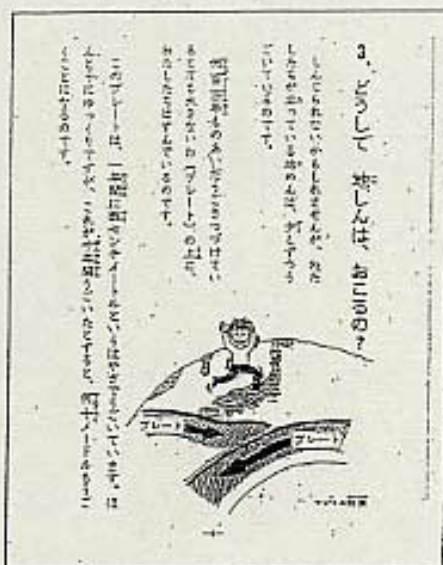 3、どうして 地しんは、おこるの?
しんじられないかもしれませんが、わた
したちが立っている地めんは、少しずつう
ごいているのです。
もの
あいだうごきつづけてい
るとても大きないわ(プレート)の上に、
わたしたちはすんでいるのです。
このプレートは、一年間に
センチメートルというはやさでうごいています。ほ
んとうにゆっくりですが、これが
年間うごいたとすると、
メートルもうご
くことになるのです。
プレート
プレート